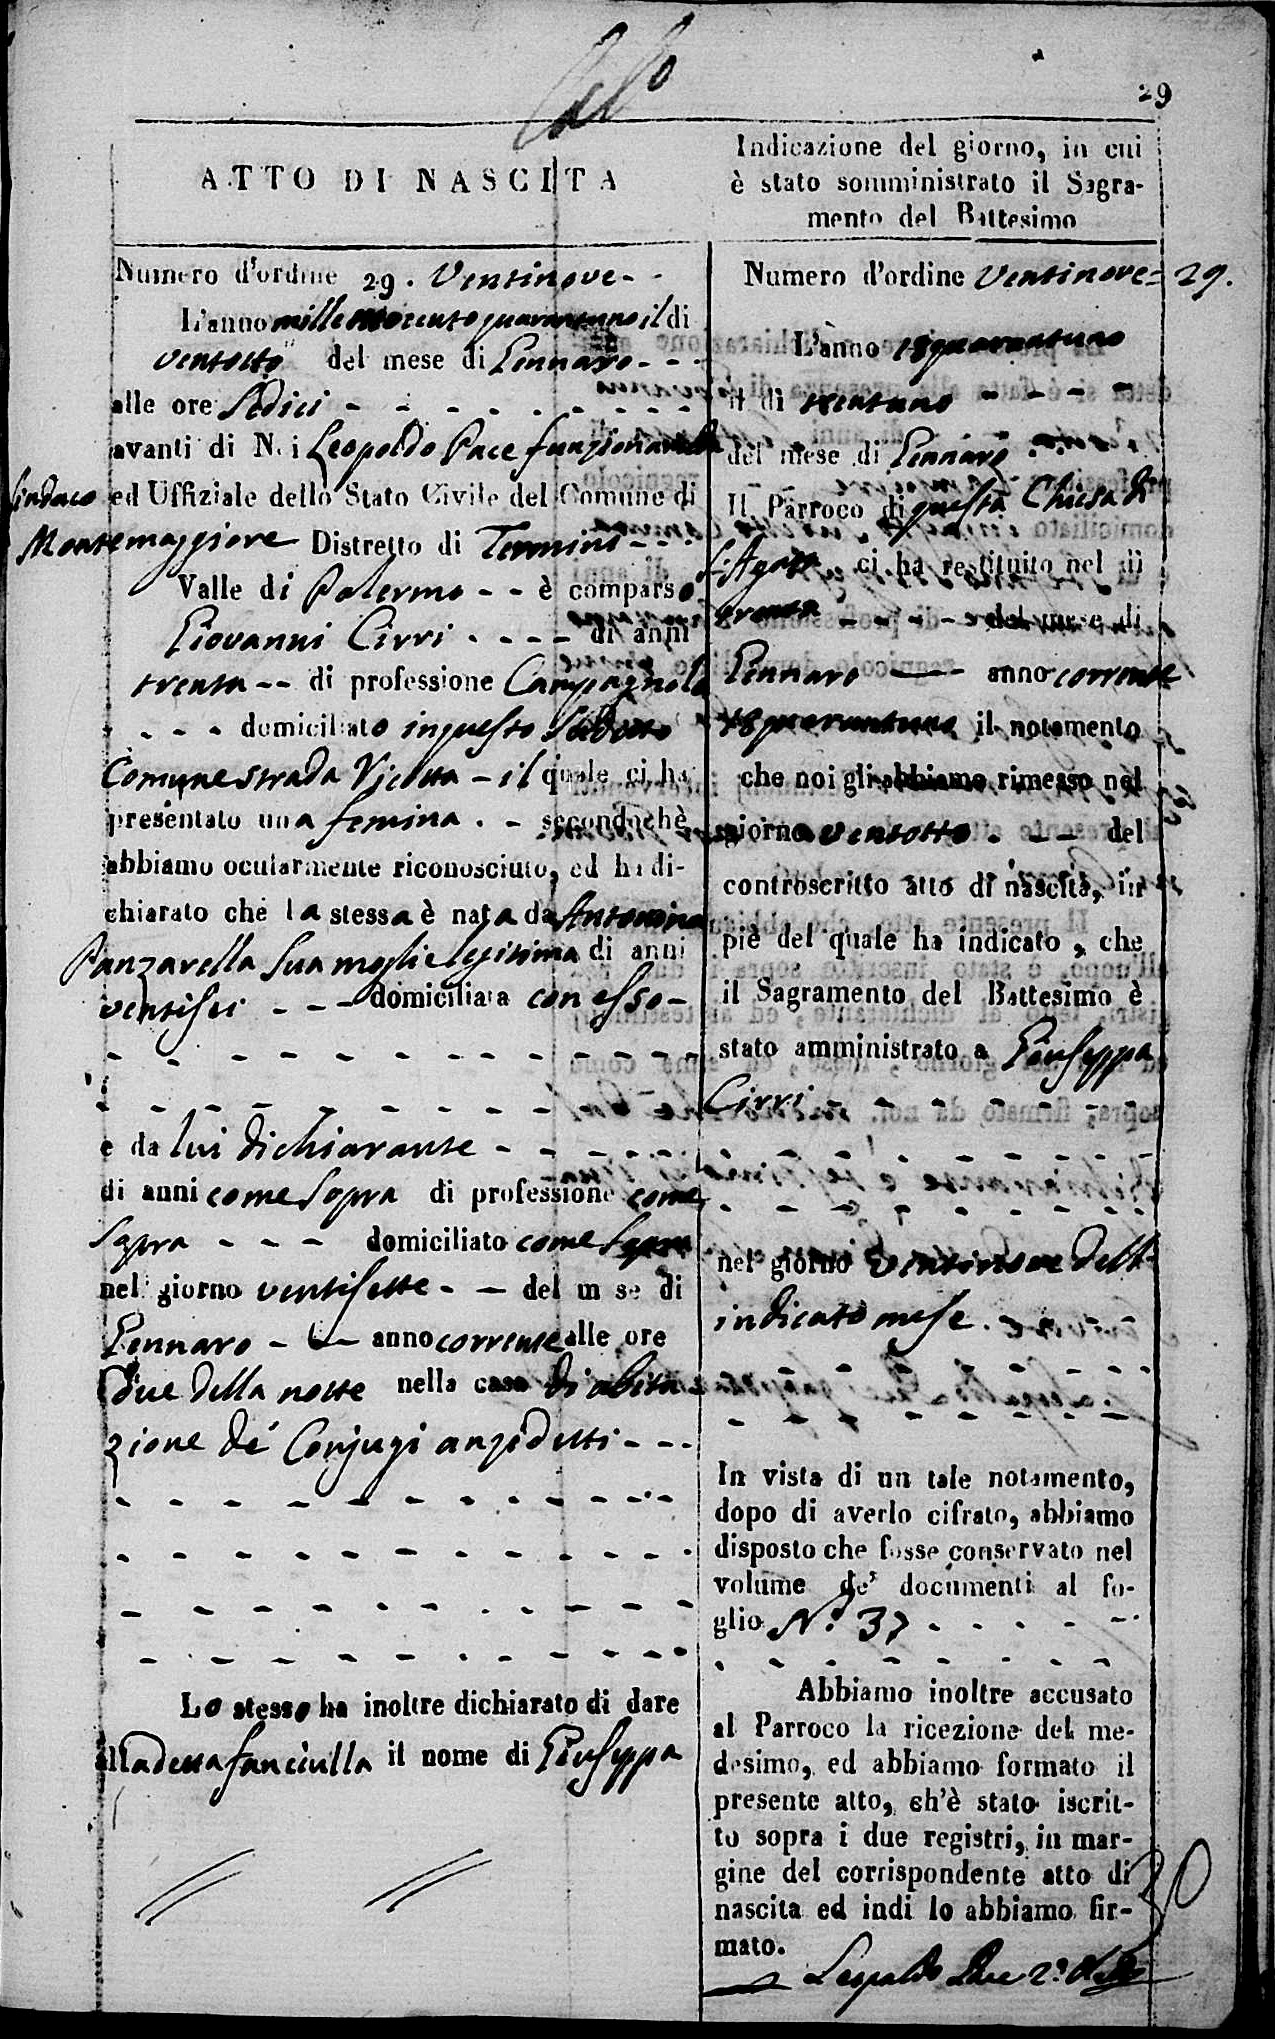 29
ATTO DI NASCITA
Numero d'ordine 29. Ventinove
L'anno mille ottocento quarantuno il di
ventotto del mese di Gennaro
alle ore Sedici
avanti di Noi Leopoldo Pace funzionante
Sindaco ed Uffiziale dello Stato Civile del Comune di
Montemaggiore Distretto di Termini
Valle di Palermo è comparso
Giovanni Cirri di anni
trenta di professione Campagnolo
domiciliato in questo Sudetto
Comune strada Vicotta il quale ci ha
presentato una femina secondochè
abbiamo ocularmente riconosciuto, ed ha di-
chiarato che la stessa è nata da Antonina
Panzarella Sua moglie legitima di anni
ventisei domiciliata con esso
e da lui dichiarante
di anni come Sopra di professione come
Sopra domiciliato come Sopra
nel giorno ventisette del mese di
Gennaro anno corrente alle ore
due della notte nella casa di abita
zione de' Conjugi anzidetti
Lo stesso ha inoltre dichiarato di dare
alla detta fanciulla il nome di Giuseppa
Indicazione del giorno, in cui
è stato somministrato il Sagra-
mento del Battesimo
Numero d'ordine Ventinove = 29.
L'anno 18quarantuno
il di trentuno
del mese di Gennaro
Il Parroco di questa Chiesa di
S. Agata ci ha restituito nel di
trenta del mese di
Gennaro anno corrente
18quarantuno il notamento
che noi gli abbiamo rimesso nel
giorno ventotto del
controscritto atto di nascita, in
piè del quale ha indicato, che
il Sagramento del Battesimo è
stato amministrato a Giuseppa
Cirri
nel giorno Ventinove dell'
indicato mese.
In vista di un tale notamento,
dopo di averlo cifrato, abbiamo
disposto che fosse conservato nel
volume de' documenti al fo-
glio N.° 37
Abbiamo inoltre accusato
al Parroco la ricezione del me-
desimo, ed abbiamo formato il
presente atto, ch'è stato iscrit-
to sopra i due registri, in mar-
gine del corrispondente atto di
nascita ed indi lo abbiamo fir-
mato.
Leopoldo Pace 2°